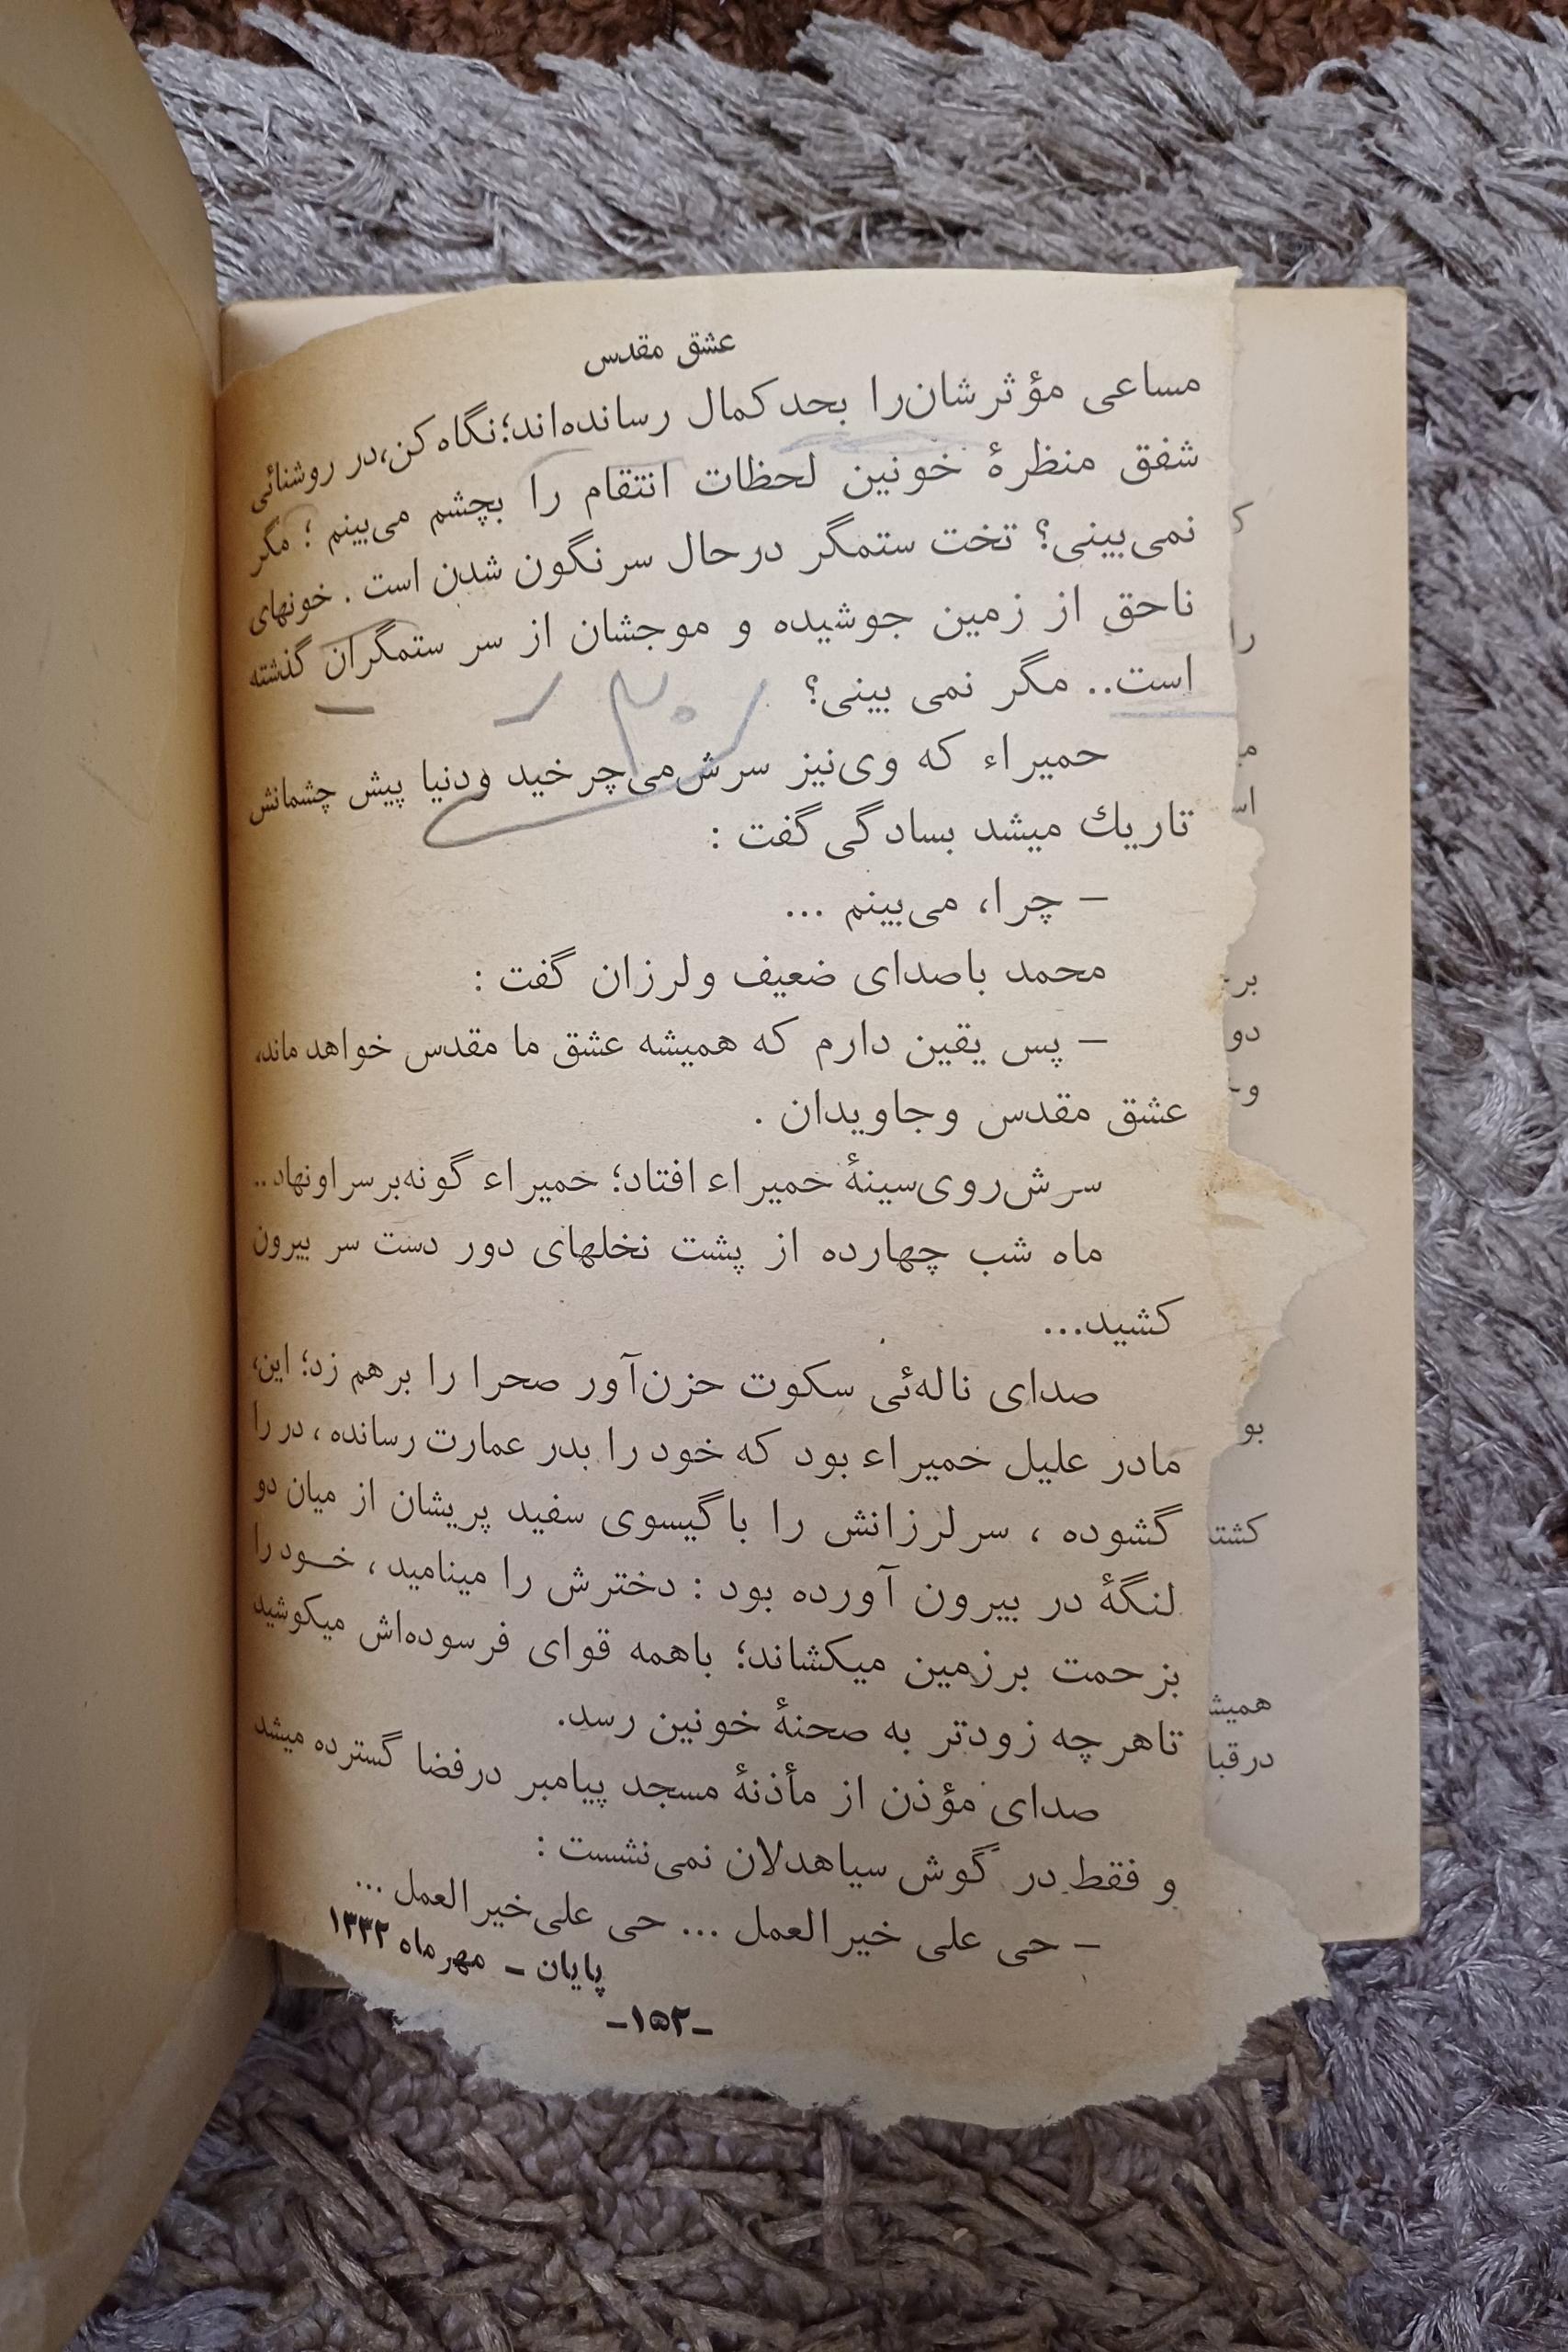 عشق مقدس
مساعی مؤثرشان‌را بحدکمال رسانده‌اند؛نگاه‌کن،در روشنائی
شفق منظرهٔ خونین لحظات انتقام را بچشم می‌بینم ؛ مگر
نمی‌بینی؟ تخت ستمگر درحال سرنگون شدن است . خونهای
ناحق از زمین جوشیده و موجشان از سر ستمگران گذشته
است.. مگر نمی بینی؟
حمیراء که وی‌نیز سرش‌می‌چرخید ودنیا پیش چشمانش
تاریك میشد بسادگی گفت :
– چرا، می‌بینم ...
محمد باصدای ضعیف ولرزان گفت :
– پس یقین دارم که همیشه عشق ما مقدس خواهد ماند،
عشق مقدس وجاویدان .
سرش‌روی‌سینهٔ حمیراء افتاد؛ حمیراء گونه‌برسراونهاد..
ماه شب چهارده از پشت نخلهای دور دست سر بیرون
کشید...
صدای ناله‌ئی سکوت حزن‌آور صحرا را برهم زد؛ این،
مادر علیل حمیراء بود که خود را بدر عمارت رسانده ، در را
گشوده ، سر لرزانش را با گیسوی سفید پریشان از میان دو
لنگهٔ در بیرون آورده بود : دخترش را مینامید ، خـود را
بزحمت برزمین میکشاند؛ باهمه قوای فرسوده‌اش میکوشید
تاهرچه زودتر به صحنهٔ خونین رسد.
صدای مؤذن از مأذنهٔ مسجد پیامبر درفضا گسترده میشد
و فقط در گوش سیاهدلان نمی‌نشست :
– حی علی خیرالعمل ... حی علی‌خیرالعمل ...
پایان – مهرماه ۱۳۳۲
–۱۵۲–